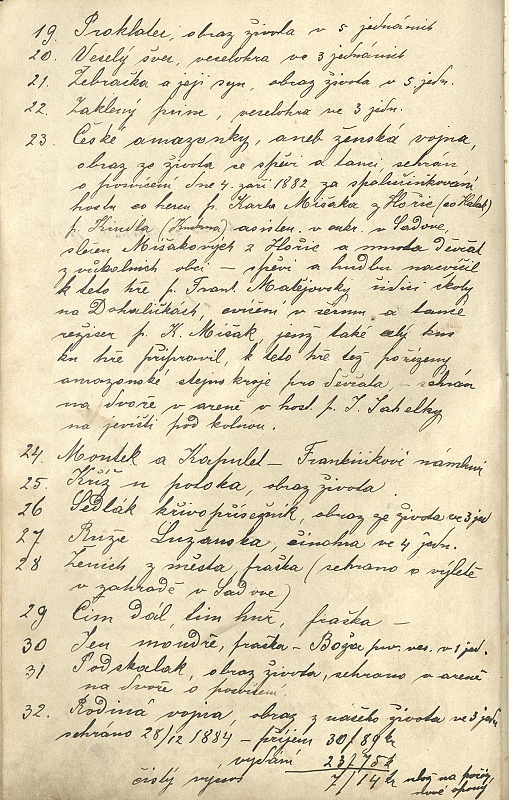 19. Proklatec, obraz života v 5 jednáních
20. Veselý švec, veselohra ve 3 jednáních
21. Žebračka a její syn, obraz života v 5. jedn.
22. Zakletý princ, veselohra ve 3 jedn.
23. České amazonky, aneb ženská vojna,
obraz ze života se zpěvi a tanci sehrán
o posvícení dne 4. září 1882 za spoluúčinkování
hosta co herce p. Karla Mišáka z Hořic
p. Kindla asisten. v cukr. v Sadové,
slečen Mišákových z Hořic a mnoha děvčat
z vůkolních obcí – zpěvi a hudbu nacvičil
k této hře p. Frant. Matějovský řídící školy
na Dohaličkách, cvičení v šermu a tance
režiser p. K. Mišák jenž také celý kus
ku hře připravil, k této hře též pořízeny
amazonské stejnokroje pro děvčata, – sehrán
na dvoře v areně v host. p. J.
na jevišti pod kolnou.
24. Montek a Kapulet – Frantíkovi námluvi
25. Kříž u potoka, obraz života
26 Sedlák křivopřísežník, obraz ze života ve 3 jed
27 Ruže Luzanska, činohra ve 4 jedn.
28 Ženich z města, fraška (sehrano o výletě
v zahradě v Sadove)
29 Čím dál, tím huř, fraška –
30 Jen moudře, fraška – ves. v 1 jed.
31 Podskalak, obraz života, sehrano v areně
na dvoře o posvícení.
32. Rodiná vojna, obraz z našeho života ve 3 jedn
sehrano 28/12 1884 – příjem 30/89 kr
vydání 23/75 k
čistý výnos 7/14 kr na poříz.
nové opony